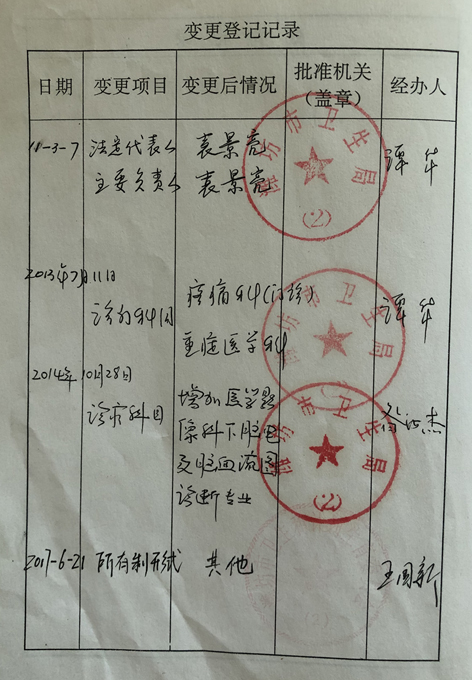 变更登记记录
日期 变更项目 变更后情况 批准机关（盖章） 经办人
11-3-7 法定代表人 袁景亮 谭华
主要负责人 袁景亮
潍坊市卫生局
(2)
2013年7月11日
诊疗科目 疼痛科(门诊) 谭华
重症医学科
潍坊市卫生局
2014年10月28日
诊疗科目 增加医学影
像科下脑电
及脑血流图
诊断专业
潍坊市卫生局
(2)
2017-6-21 所有制形式 其他 王国新